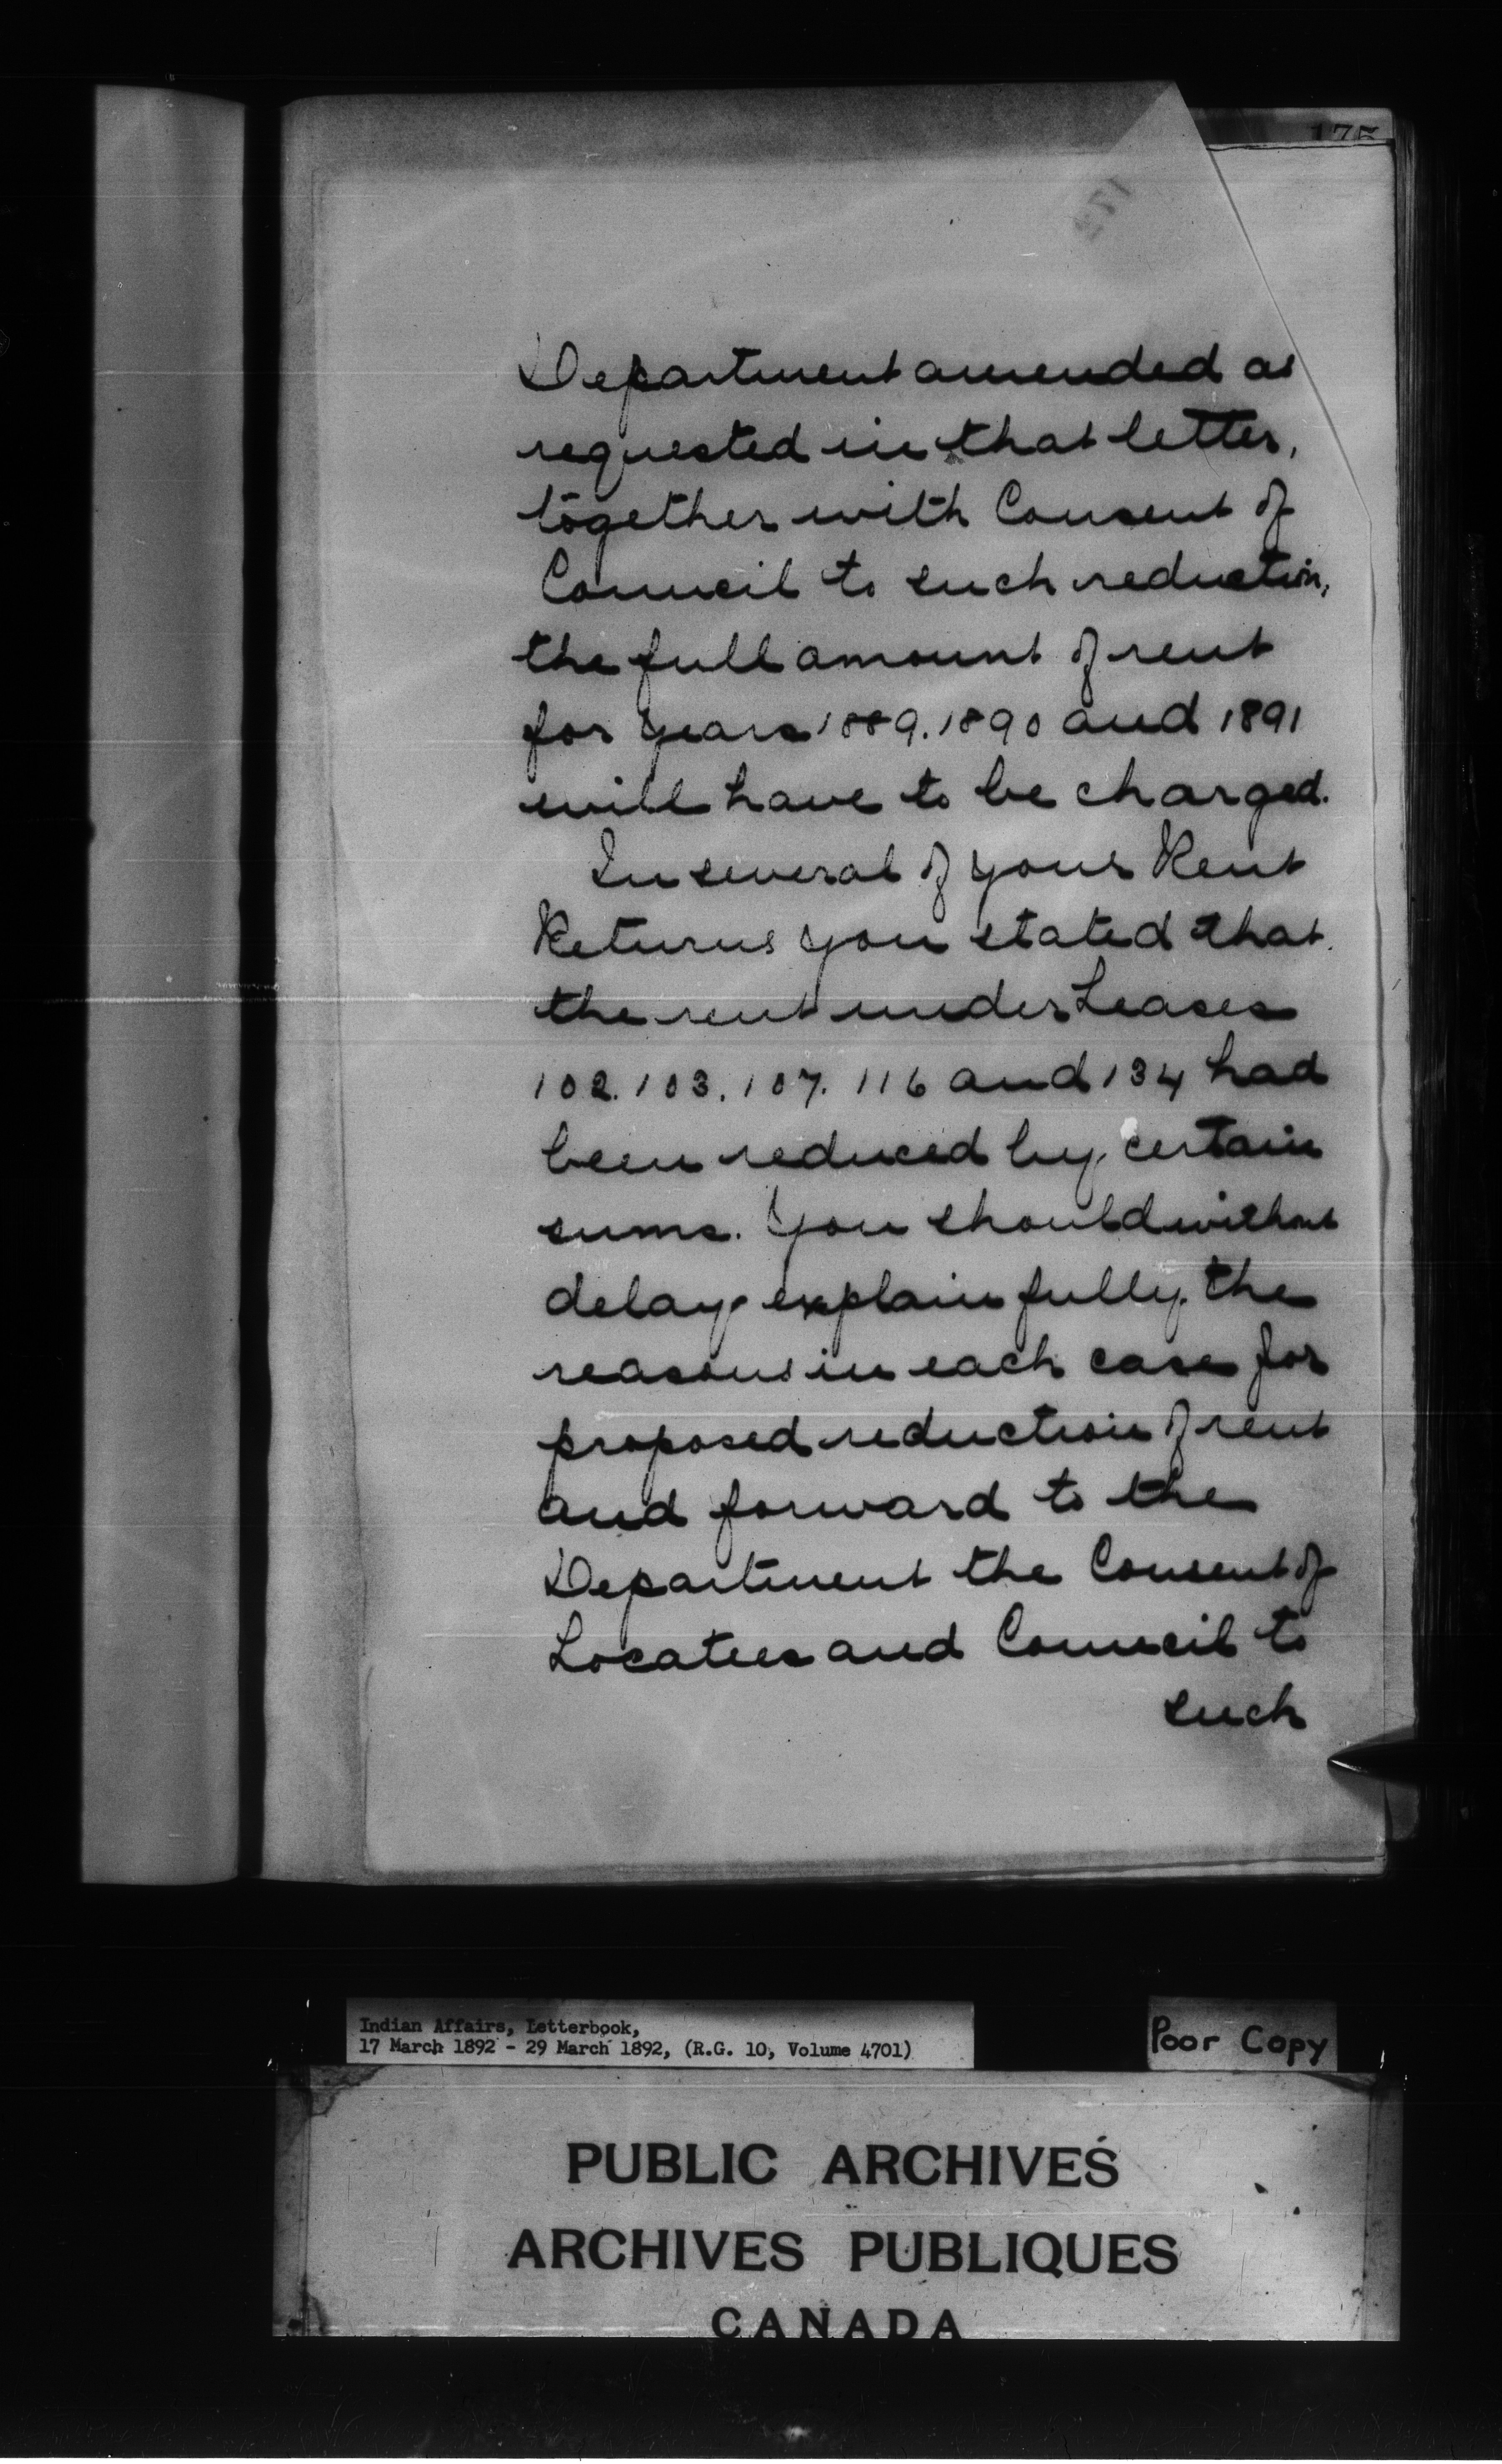 Department amended as
requested in that letter,
together with Consent of
Council to such reduction,
the full amount of rent
for years 1889. 1890 and 1891
will have to be charged.
In several of your Rent
Returns you stated that
the rent under Leases
102. 103. 107. 116 and 134 had
been reduced by certain
sums. You should without
delay explain fully the
reasons in each case for
proposed reduction of rent
and forward to the
Department the Consent of
Locatees and Council to
such
Indian Affairs, Letterbook,
17 March 1892 - 29 March 1892, (R.G. 10, Volume 4701)
Poor Copy
PUBLIC ARCHIVES
ARCHIVES PUBLIQUES
CANADA